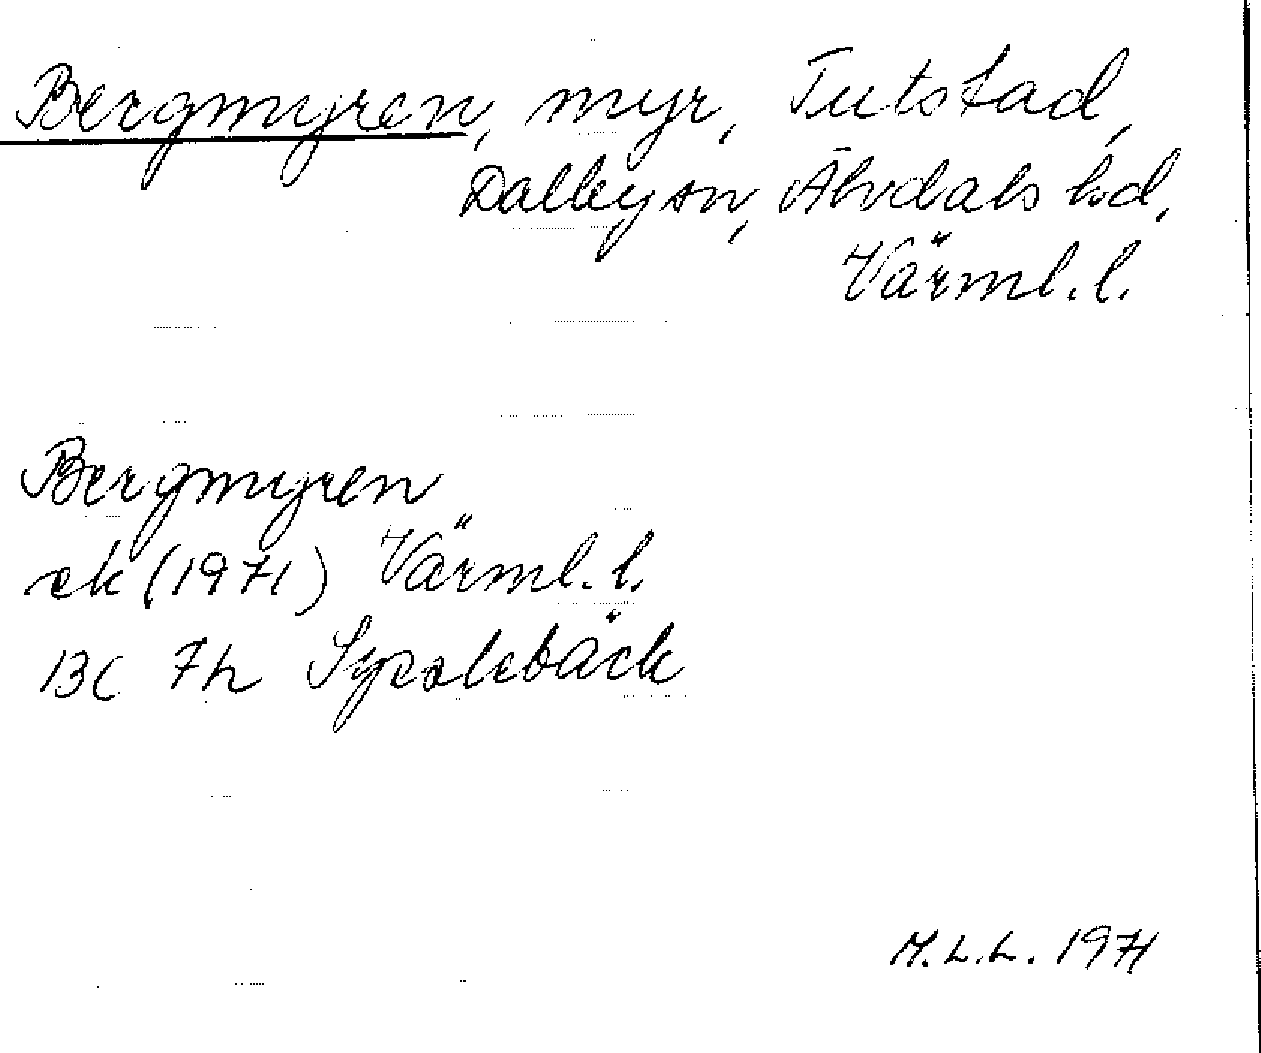 Bergmyren, myr, Tutstad,
Dalby sn, Älvdals hd,
Värml. l.
Bergmyren
ek (1971) Värml. l.
13C 7h Sysslebäck
M.L.L. 1971